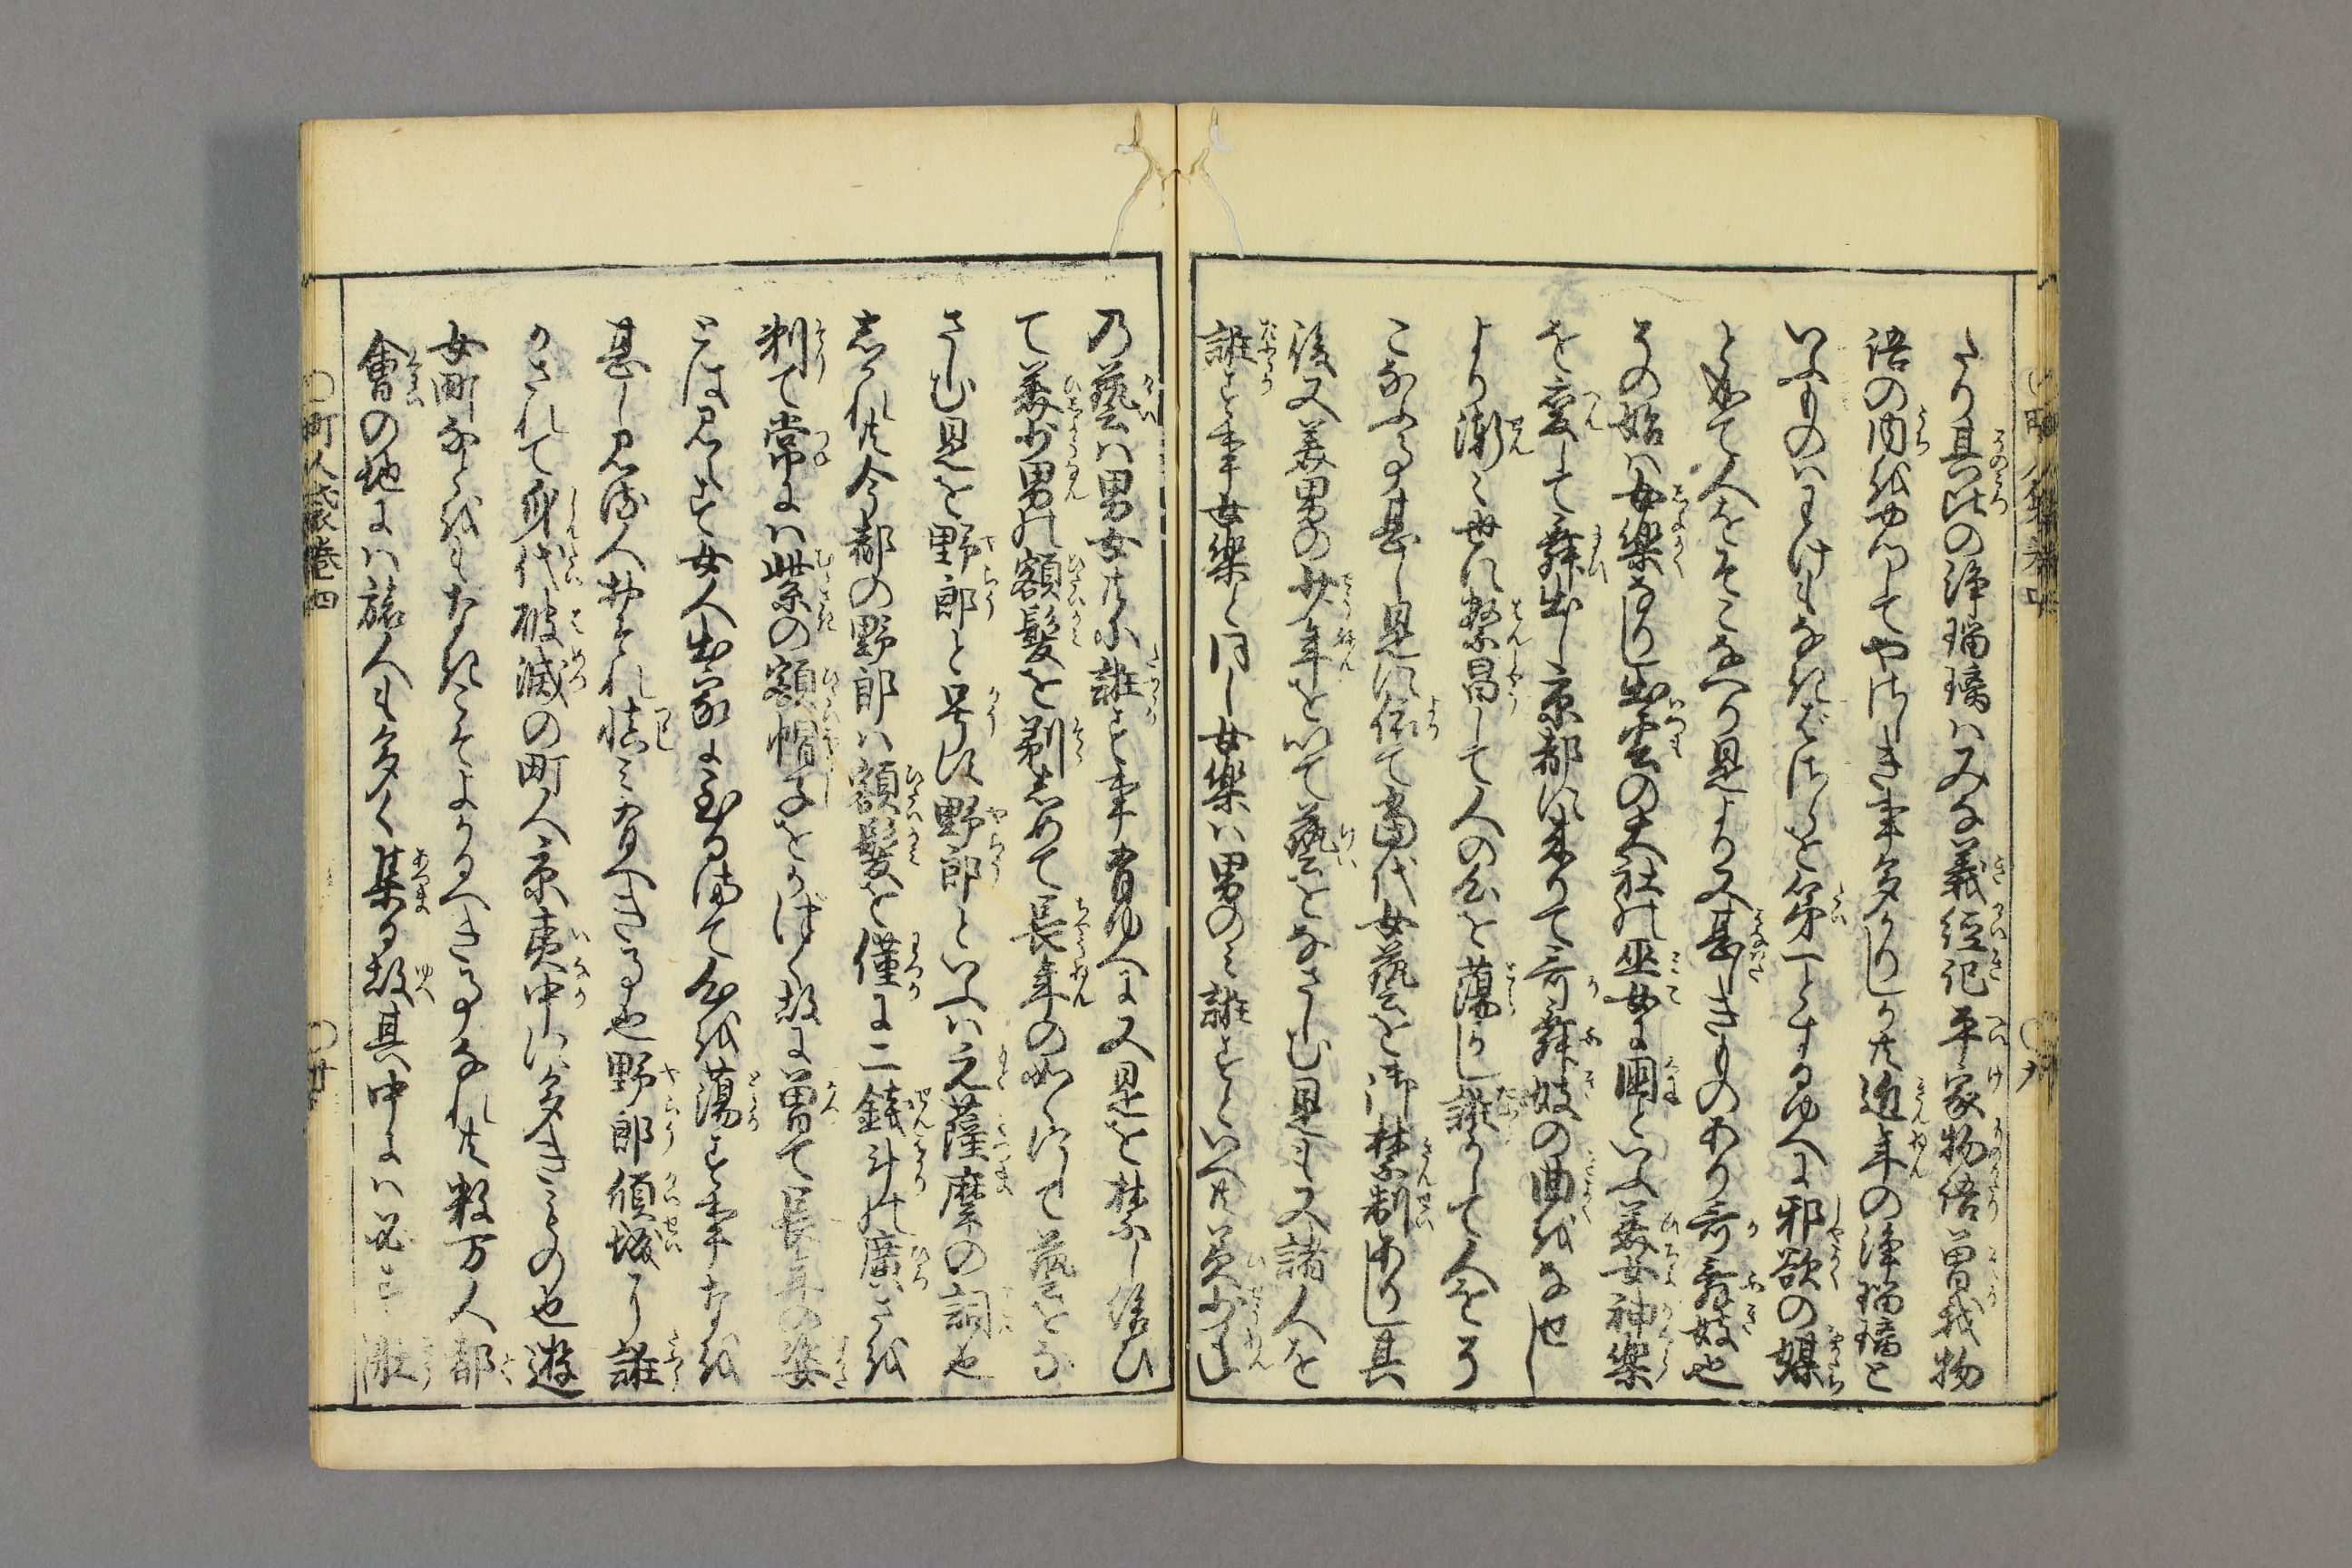 たり其比の浄瑠璃ハみな義経記平家物語曽我物
語の内をやつしてやさしき事多かりしか共近年の浄瑠璃と
いふものハわけもなきざれことを第一とするゆへに邪欲の媒
と成て人をそこなへり是より又甚しきものあり哥舞妓也
その始ハ女楽なり出雲の大社の巫女に国といふ美女神楽
を変して舞出し京都に来りて哥舞妓の曲をなせし
より漸〻世に繁昌して人の心を蕩かし誑かして人をそ
こなふ事甚し是に依て当代女藝を御禁制ありし其
後又美男の少年を以て藝をなさしむ是も又諸人を
誑す事女楽と同し女楽ハ男のミ誑すといへ共美少年
乃藝ハ男女共に誑す事有ゆへに又是を禁し給ひ
て美少男の額髪を剃しめて長年の如くにして藝をな
さしむ是を野郎と号す野郎といふハ元薩摩の詞也
しかれ共今都の野郎ハ額髪を僅に二銭斗の廣さを
剃て常にハ紫の額帽子をかづく故に曽て長年の姿
とは見へす女人出家に至る迄て心を蕩す事なを
甚し見る人おそれ慎ミ有へき事也野郎傾城に誑
かされて身代破滅の町人京夷中に多きミもの也遊
女町なとをもなきこそよかるへき事なれ共数万人都
會の地にハ旅人も多く集る故其中にハ必す
町人嚢巻四